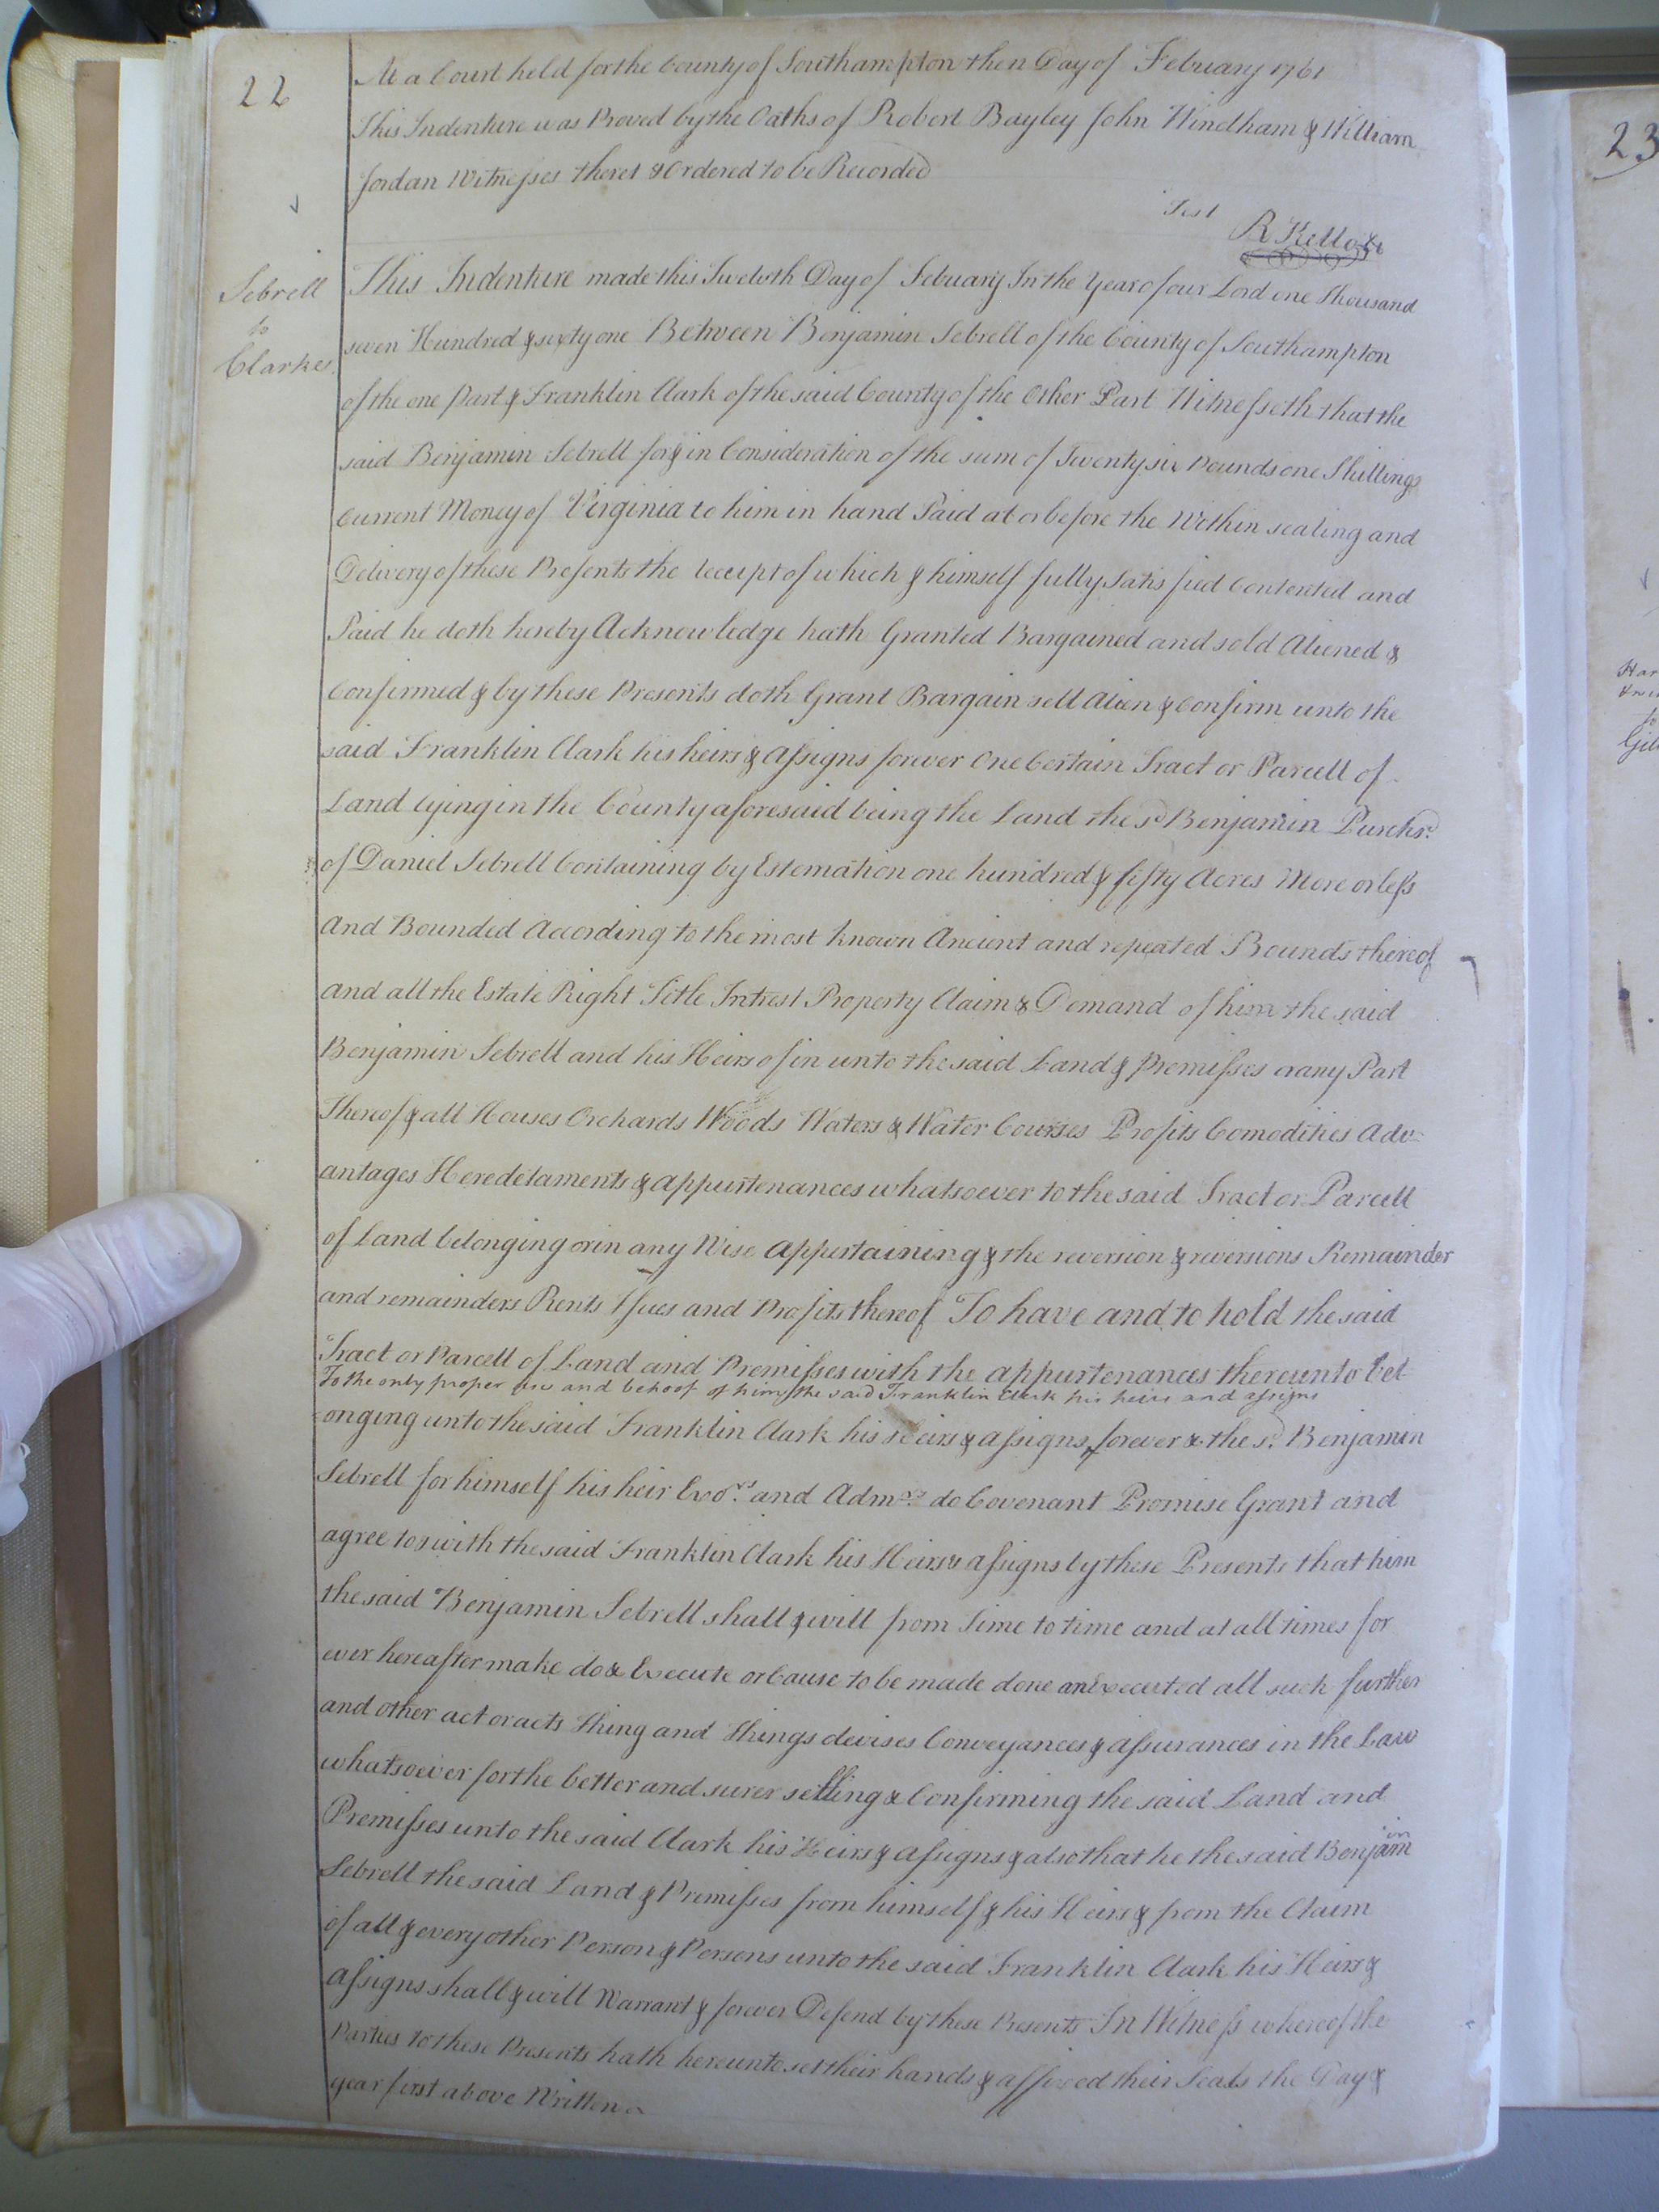 22
At a Court held for the County of Southampton the 12 Day of Febuary 1761
This Indenture was Proved by the Oaths of Robert Bayley John Windham & William
Jordan Witnesses theret & Ordered to be Recorded
Test
R Kello
Sebrell
to
Clarke
This Indenture made this Twelvth Day of Febuary In the Year of our Lord one Thousand
seven Hundred & sixty one Between Benjamin Sebrell of the County of Southampton
of the one Part & Franklin Clark of the said County of the Other Part Witnesseth that the
said Benjamin Sebrell for & in Consideration of the sum of Twenty six Pounds one Shillings
Current Money of Virginia to him in hand Paid at or before the Within sealing and
Delivery of these Presents the Receipt of which & himself fully Satisfied Contented and
Paid he doth hereby Acknowledge hath Granted Bargained and sold Aliened &
Confirmed & by these Presents doth Grant Bargain sell Alien & Confirm unto the
said Franklin Clark his heirs & Assigns forever One Certain Tract or Parcell of
Land lying in the County aforesaid being the Land the sd Benjamin Purchsd
of Daniel Sebrell Containing by Estemation one hundred & fifty Acres More or less
And Bounded According to the most known Ancient and repeated Bounds thereof
and all the Estate Right Title Intrest Property Claim & Demand of him the said
Benjamin Sebrell and his Heirs of in unto the said Land & Premisses or any Part
Thereof & all Houses Orchards Woods Waters & Water Courses Profits Comodities Adv=
antages Heredetaments & appurtenances whatsoever to the said Tract or Parcell
of Land belonging or in any Wise appertaining & the reversion & reversions Remainder
and remainders Rents Issues and Profits thereof To have and to hold the said
Tract or Parcell of Land and Premisses with the appurtenances thereunto bel
To the only proper use and behoof of him the said Franklin Clark his heirs and assigns
onging unto the said Franklin Clark his Heirs & assigns forever & the sd Benjamin
Sebrell for himself his heir Exors and Admrs do Covenant Promise Grant and
agree to & with the said Franklin Clark his Heirs & assigns by these Presents that him
the said Benjamin Sebrell shall & will from Time to time and at all times for
ever hereafter make do & Execute or Cause to be made done an Executed all such further
and other act or acts Thing and Things devises Conveyances & assurances in the Law
whatsoever for the better and surer settling & Confirming the said Land and
Premisses unto the said Clark his Heirs & assigns & also that he the said Benjamin
Sebrell the said Land & Premisses from himself & his Heirs & from the Claim
of all & every other Person & Persons unto the said Franklin Clark his Heirs &
assigns shall & will Warrant & forever Defend by these Presents In Witness whereof the
Parties to these Presents hath hereunto set their hands & affixed their Seals the Day &
year first above Written
23